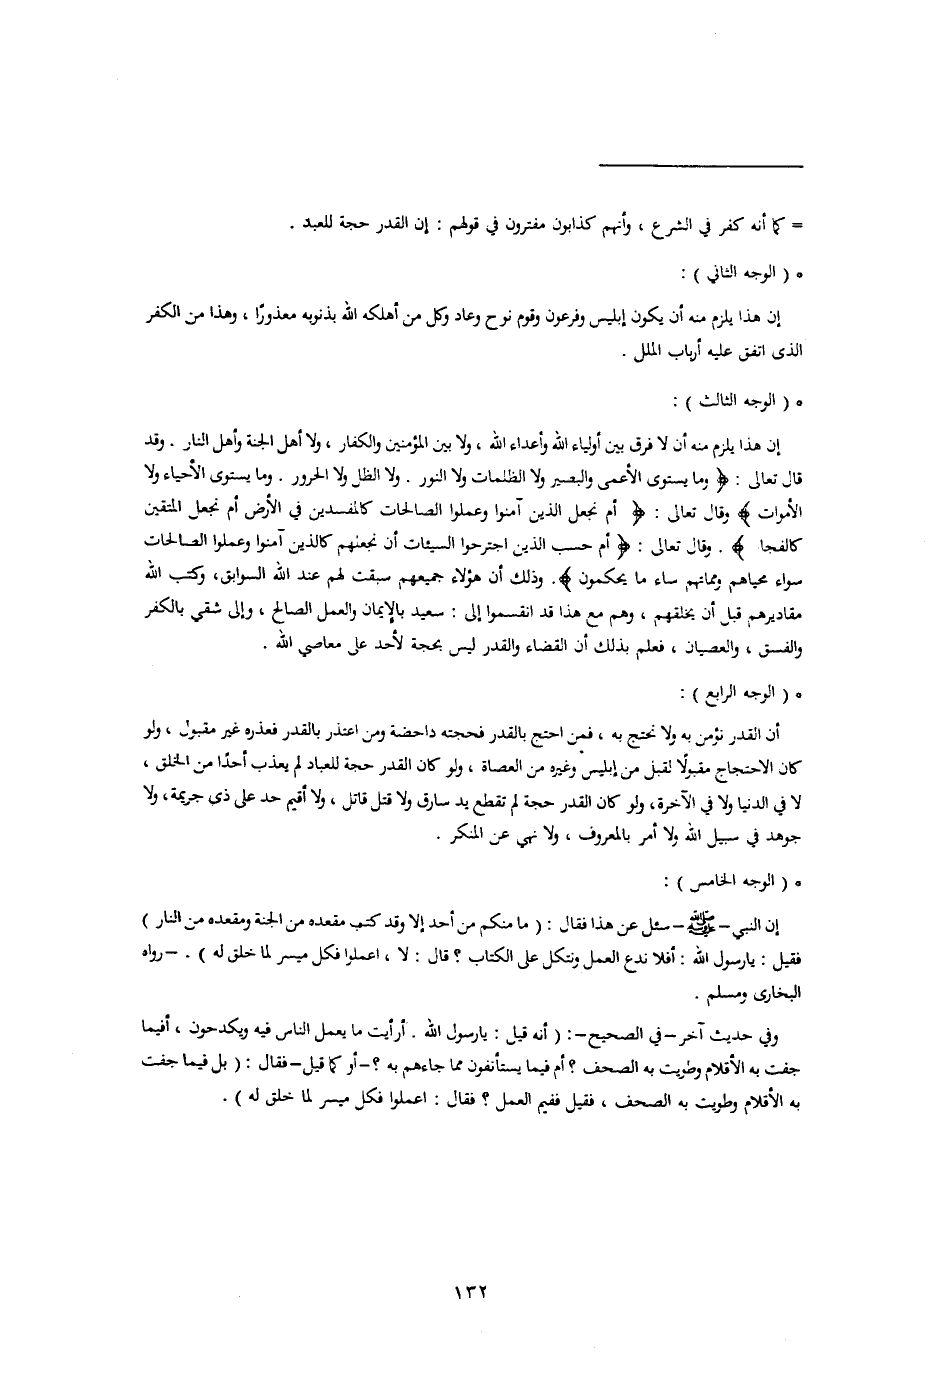 = كما أنه كفر في الشرع ، وأنهم كذابون مفترون في قولهم : إن القدر حجة للعبد .
ه ( الوجه الثاني ) :
إن هذا يلزم منه أن يكون إبليس وفرعون وقوم نوح وعاد وكل من أهلكه الله بذنوبه معذورًا ، وهذا من الكفر
الذى اتفق عليه أرباب الملل .
ه ( الوجه الثالث ) :
إن هذا يلزم منه أن لا فرق بين أولياء الله وأعداء الله ، ولا بين المؤمنين والكفار ، ولا أهل الجنة وأهل النار . وقد
قال تعالى : ﴿ وما يستوى الأعمى والبصير ولا الظلمات ولا النور . ولا الظل ولا الحرور . وما يستوى الأحياء ولا
الأموات ﴾ وقال تعالى : ﴿ أم نجعل الذين آمنوا وعملوا الصالحات كالمفسدين في الأرض أم نجعل المتقين
كالفجا ﴾ . وقال تعالى : ﴿ أم حسب الذين اجترحوا السيئات أن نجعلهم كالذين آمنوا وعملوا الصالحات
سواء محياهم ومماتهم ساء ما يحكمون ﴾. وذلك أن هؤلاء جميعهم سبقت لهم عند الله السوابق، وكتب الله
مقاديرهم قبل أن يخلقهم ، وهم مع هذا قد انقسموا إلى : سعيد بالإيمان والعمل الصالح ، وإلى شقي بالكفر
والفسق ، والعصيان ، فعلم بذلك أن القضاء والقدر ليس بحجة لأحد على معاصي الله .
ه ( الوجه الرابع ) :
أن القدر نؤمن به ولا نحتج به ، فمن احتج بالقدر فحجته داحضة ومن اعتذر بالقدر فعذره غير مقبول ، ولو
كان الاحتجاج مقبولًا لقبل من إبليس وغيره من العصاة ، ولو كان القدر حجة للعباد لم يعذب أحدًا من الخلق ،
لا في الدنيا ولا في الآخرة، ولو كان القدر حجة لم تقطع يد سارق ولا قتل قاتل ، ولا أقيم حد على ذي جريمة، ولا
جوهد في سبيل الله ولا أمر بالمعروف ، ولا نهي عن المنكر .
ه ( الوجه الخامس ) :
إن النبي - ﷺ - سئل عن هذا فقال : ( ما منكم من أحد إلا وقد كتب مقعده من الجنة ومقعده من النار )
فقيل : يارسول الله : أفلا ندع العمل ونتكل على الكتاب ؟ قال : لا ، اعملوا فكل ميسر لما خلق له ) . - رواه
البخارى ومسلم .
وفي حديث آخر - في الصحيح -: ( أنه قيل : يارسول الله . أرأيت ما يعمل الناس فيه ويكدحون ، أفيما
جفت به الأقلام وطويت به الصحف ؟ أم فيما يستأنفون مما جاءهم به ؟ - أو كما قيل - فقال : ( بل فيما جفت
به الأقلام وطويت به الصحف ، فقيل ففيم العمل ؟ فقال : اعملوا فكل ميسر لما خلق له ) .
١٣٢